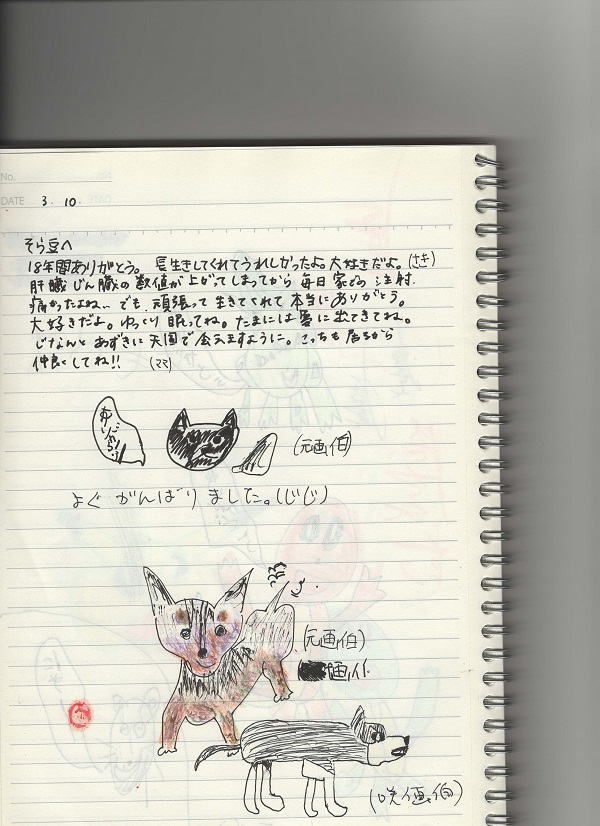 No.
DATE 3.10.
そら豆へ
18年間ありがとう。長生きしてくれてうれしかったよ。大好きだよ。(さき)
肝臓じん臓の数値が上がってしまってから毎日家での注射
痛かったよね… でも、頑張って生きてくれて本当にありがとう。
大好きだよ。ゆっくり眠ってね。たまには夢に出てきてね。
じなんとあずきに天国で会えますように。こっちも居るから
仲良くしてね!! (ママ)
(元画伯)
よく がんばりました。(じじ)
(元画伯)
画伯
(咲画伯)